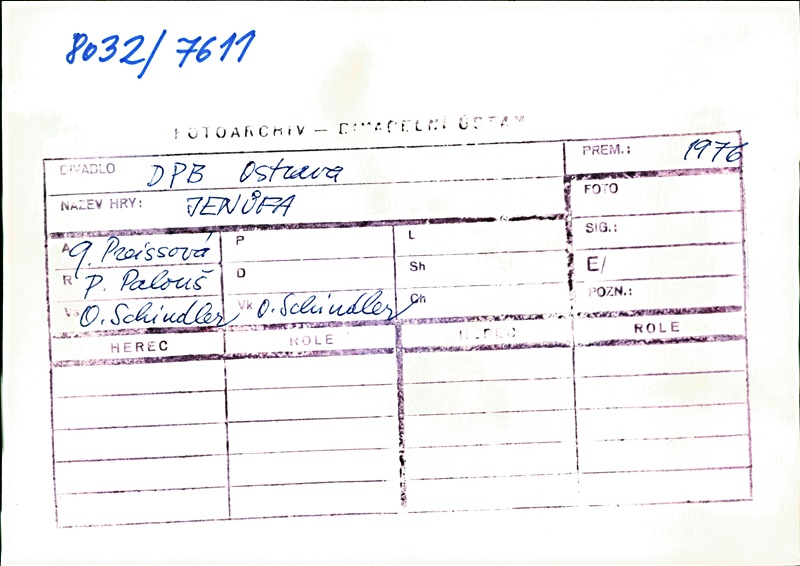 8032/7611
FOTOARCHIV — DIVADELNÍ ÚSTAV
DIVADLO DPB Ostrava PREM.: 1976
NÁZEV HRY: JENŮFA FOTO
A G. Preissová P L SIG.:
R P. Palouš D Sh E/
Vs O. Schindler Vk O. Schindler Ch POZN.:
HEREC ROLE HEREC ROLE